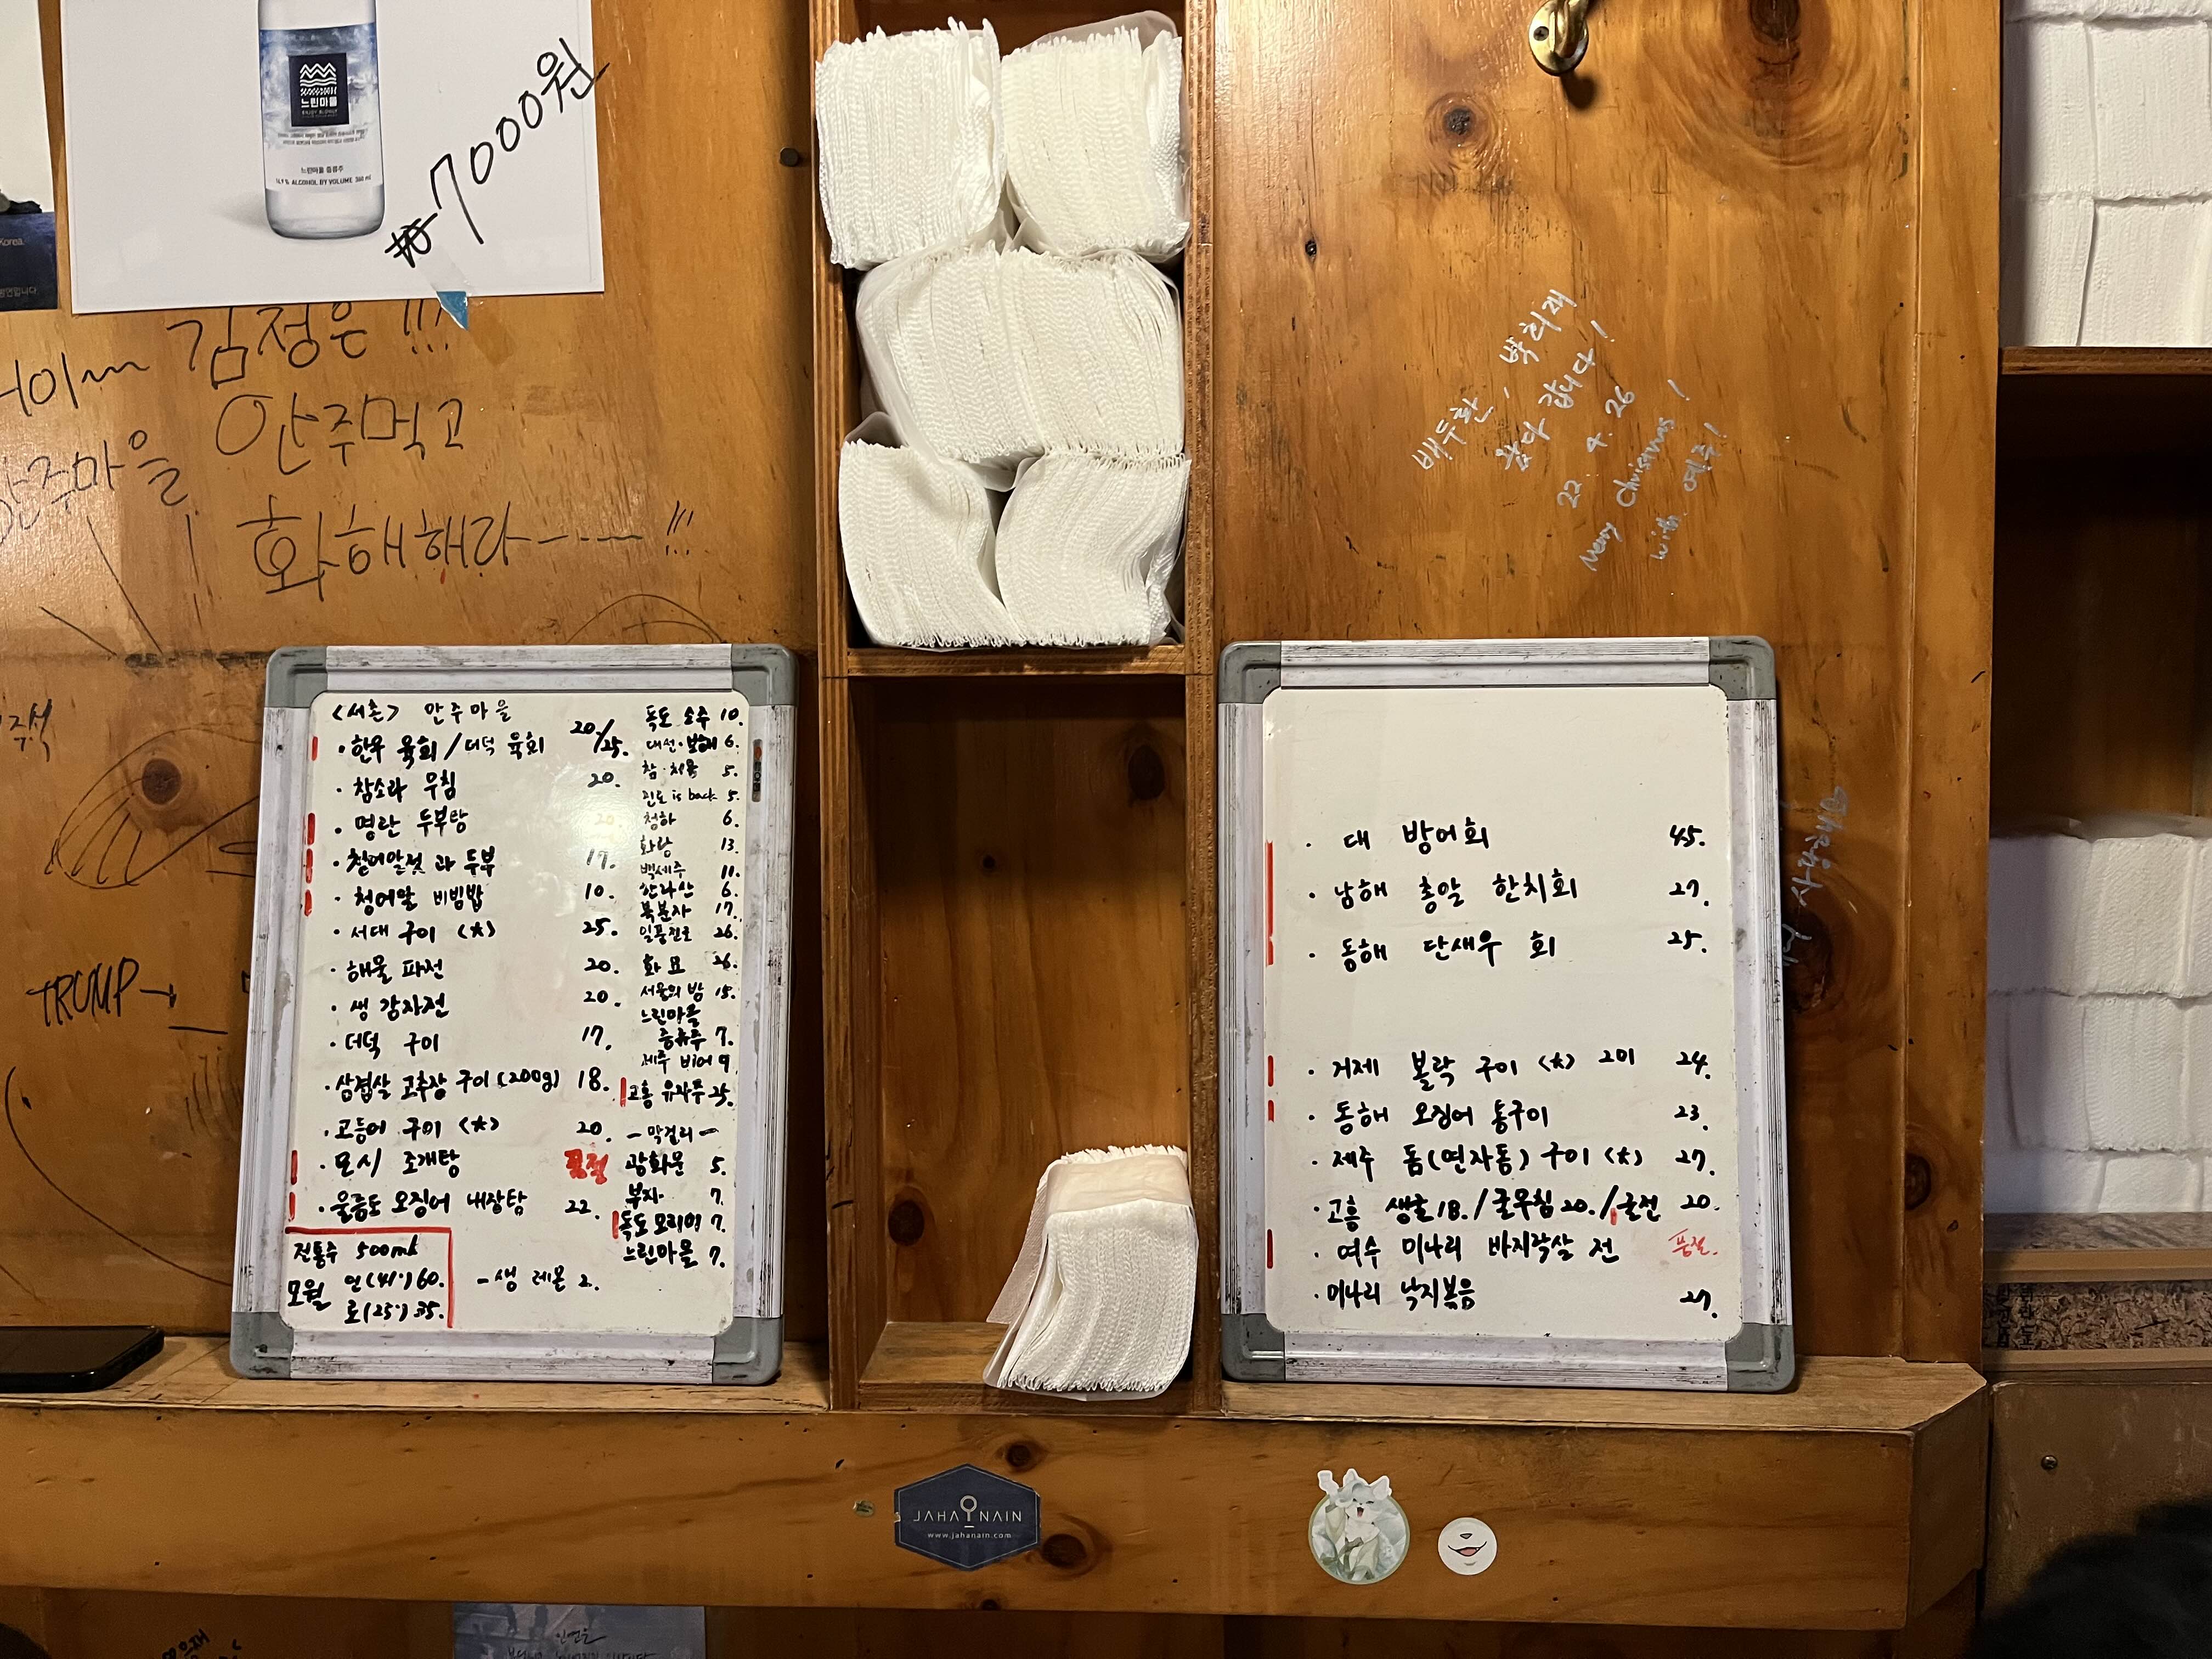 느린마을
ENJOY SLOWLY
느린마을 증류주
16.9% ALCOHOL BY VOLUME 360 ml
₩7000원
Korea.
김정은 !!!
안주먹고
안주마을
화해해라~~~ !!!
TRUMP→
배두환,
찾아 갑니다!
22. 4. 26
Merry Christmas!
with.
<서촌> 안주마을
· 한우 육회/더덕 육회 20./25.
· 참소라 무침 20.
· 명란 두부탕 20.
· 청어알젓과 두부 17.
· 청어알 비빔밥 10.
· 서대 구이 <大> 25.
· 해물 파전 20.
· 생 감자전 20.
· 더덕 구이 17.
· 삼겹살 고추장 구이(200g) 18.
· 고등어 구이 <大> 20.
· 모시 조개탕 품절
· 울릉도 오징어 내장탕 22.
전통주 500ml
모월 인(41°)60.
로(25°)35.
- 생 레몬 2.
독도 소주 10.
대선·보해 6.
참·처음 5.
진로 is back 5.
청하 6.
화랑 13.
백세주 11.
한라산 6.
복분자 17.
일품진로 26.
화요 26.
서울의 밤 15.
느린마을
증류주 7.
제주 비어 9
고흥 유자주 25.
- 막걸리 -
광화문 5.
부자 7.
독도 7.
느린마을 7.
· 대 방어회 45.
· 남해 총알 한치회 27.
· 동해 단새우 회 25.
· 거제 볼락 구이 <大> 2미 24.
· 동해 오징어 통구이 23.
· 제주 돔(연자돔) 구이 <大> 27.
· 고흥 생굴 18./굴무침 20./굴전 20.
· 여수 미나리 바지락살 전 품절.
· 미나리 낙지볶음 27.
JAHAINAIN
www.jahanain.com